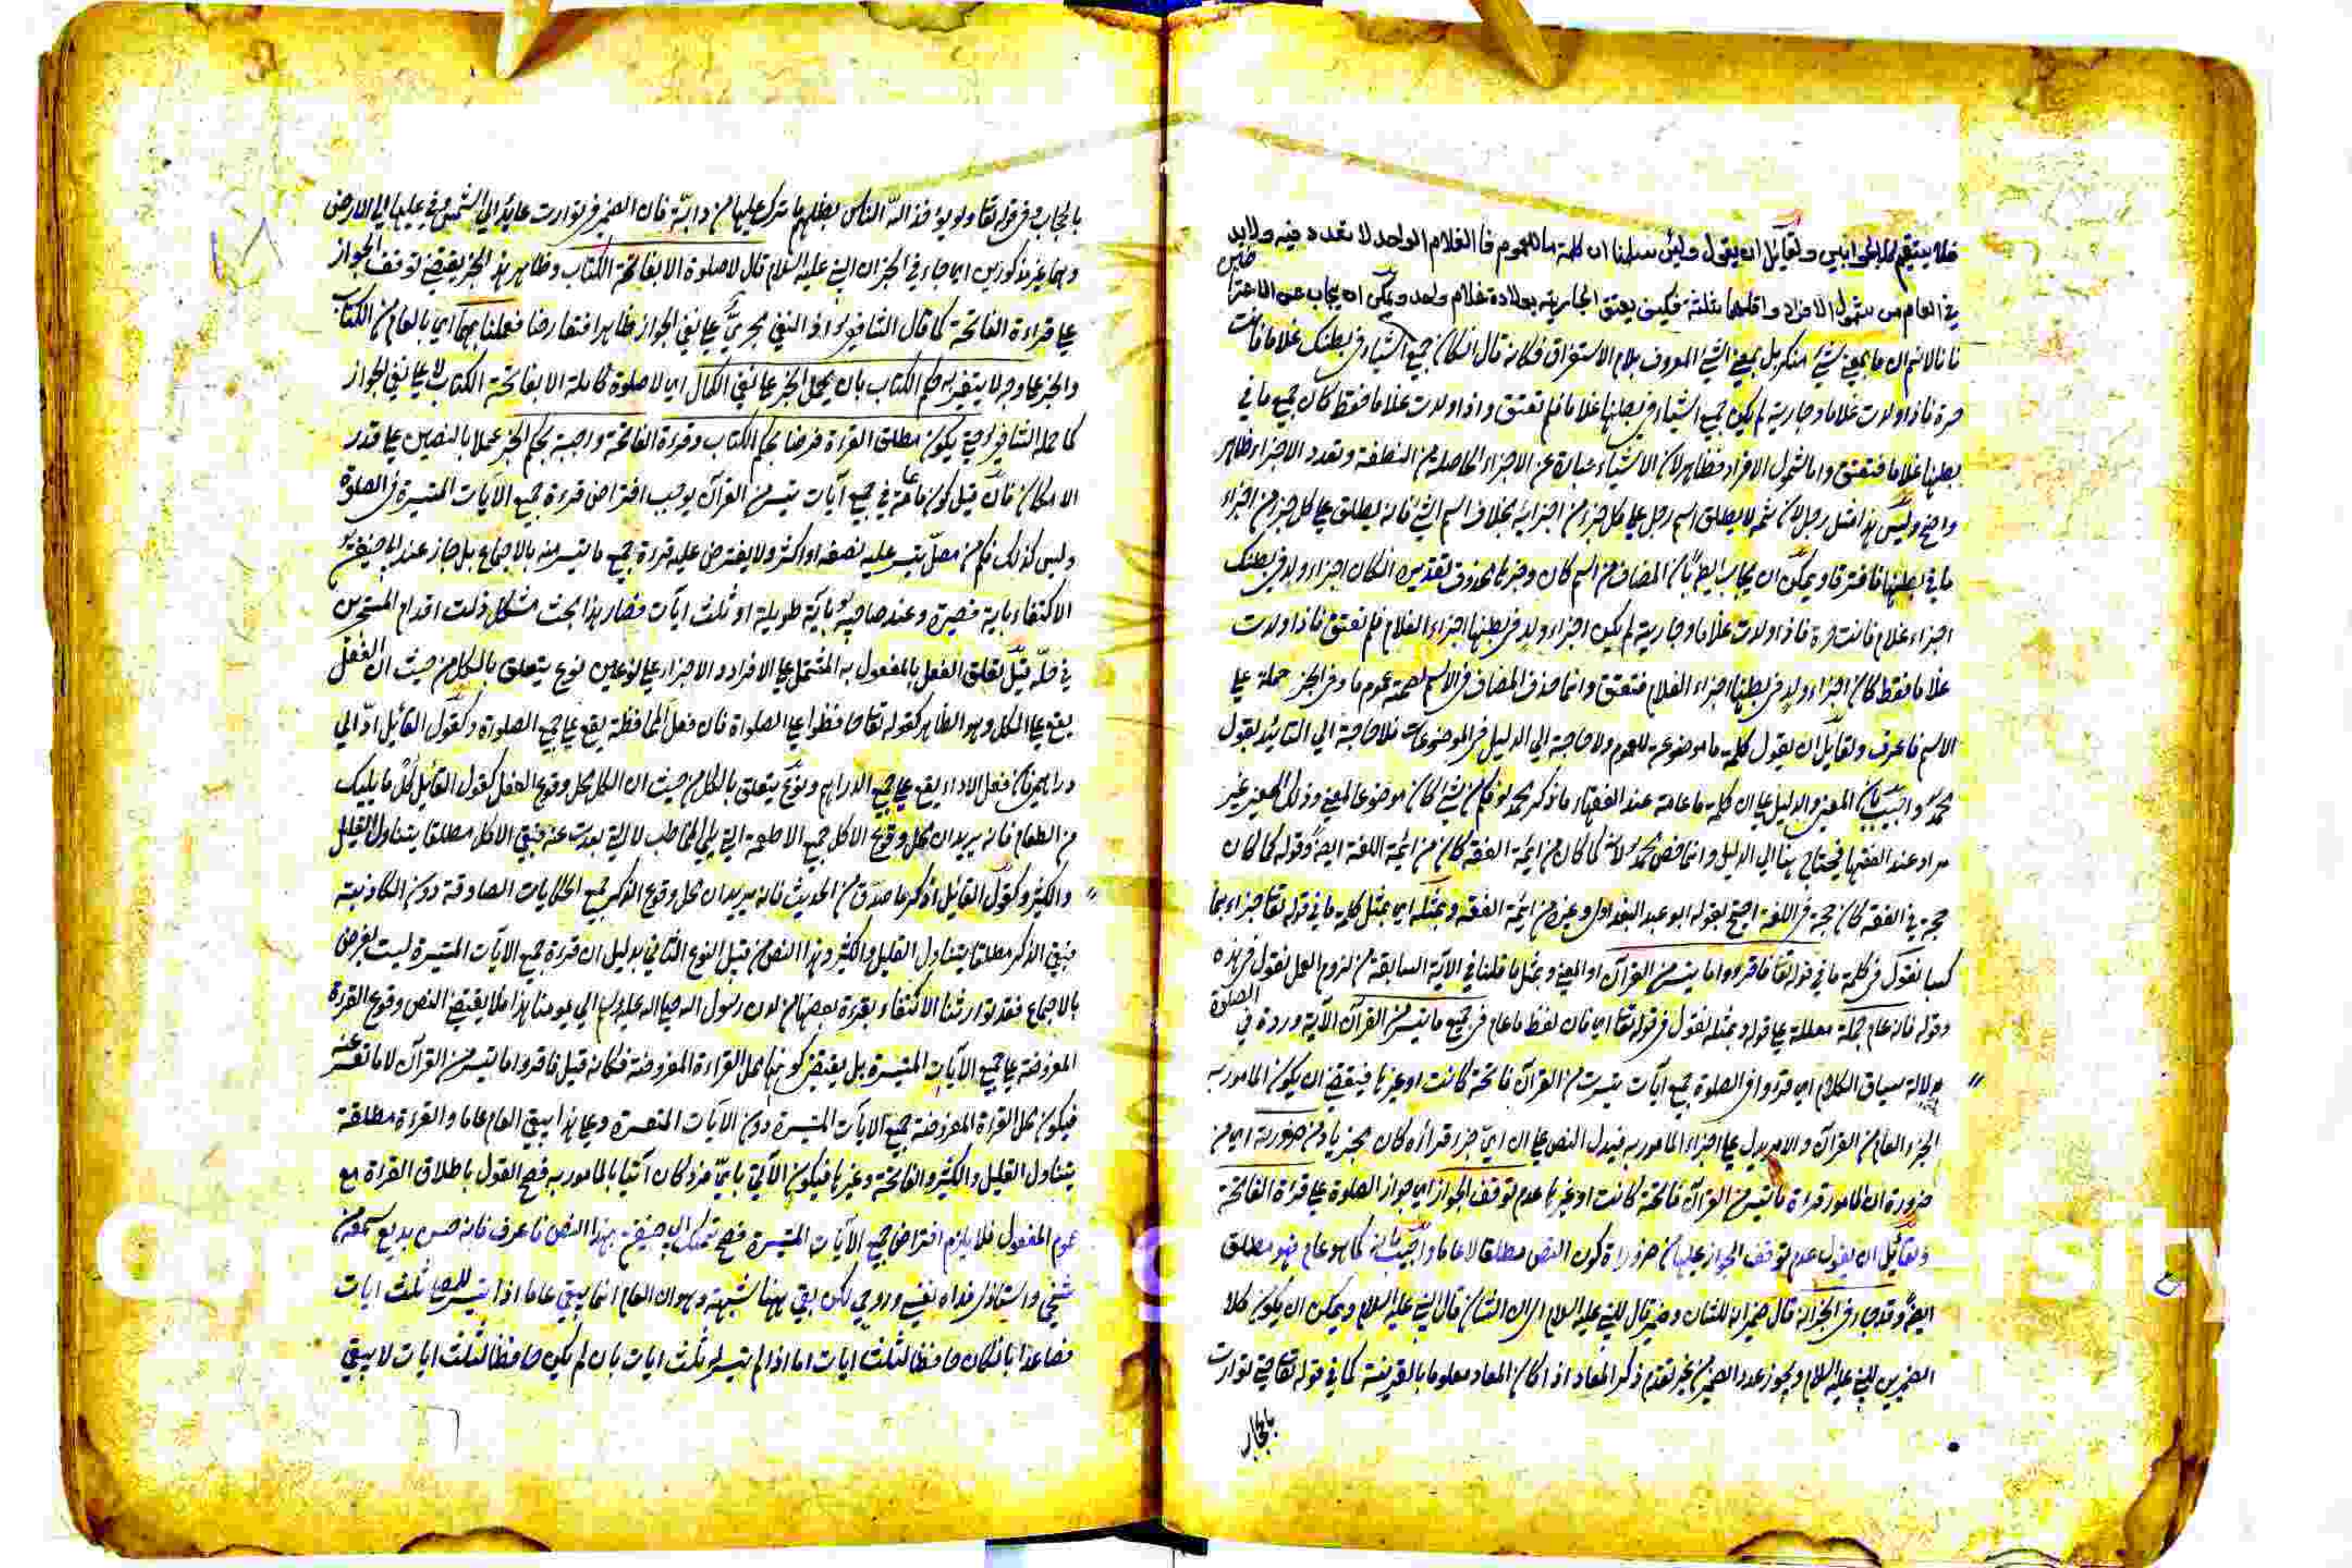 فلا يستقيم كلا الجوابين ولقائل ان يقول ولئن سلمنا ان كلمة ما للعموم فالغلام الواحد لا تعدد فيه ولابد
في العام من شمول الافراد واقلها ثلثة فكيف يعتق الجارية بولادة غلام واحد ويمكن ان يجاب عن الاعتراض
بانا لانم ان ما بمعني شيئ منكر بل بمعني الشيئ المعروف بلام الاستغراق فكانه قال ان كان جميع اشياء في بطنك غلاما فانت
حرة فاذا ولدت غلاما وجارية لم يكن جميع اشياء في بطنها غلاما فلم تعتق واذا ولدت غلاما فقط كان جميع ما في
بطنها غلاما فتعتق واما شمول الافراد فظاهر لان الاشياء عبارة عن الاجزاء الحاصلة من النطفة وتعدد الاجزاء ظاهر
واضح وليس هذا مثل رجل لان ثمه لا يطلق اسم رجل علي كل جزء من اجزائه بخلاف اسم الشيئ فانه يطلق علي كل جزء من اجزاء
ما في بطنها فافترقا ويمكن ان يجاب ايضا بان المضاف من اسم كان وخبرها محذوف تقديره ان كان اجزاء ولد في بطنك
اجزاء غلام فانت حرة فاذا ولدت غلاما وجارية لم يكن اجزاء ولد في بطنها اجزاء الغلام فلم تعتق فاذا ولدت
غلاما فقط كان اجزاء ولد في بطنها اجزاء الغلام فتعتق وانما حذف المضاف في الاسم لصحة عموم ما وفي الخبر حملة علي
الاسم فاعرف ولقائل ان يقول كلمة ما موضوعة للعموم ولا حاجة الي الدليل في الموضوعات فلا حاجة الي التائيد بقول
محمد واجيب بان المعني والدليل علي ان كلمة ما عامة عند الفقهاء ما ذكر محمد لو فكل شيئ كان موضوعا لمعني وذلك المعني غير
مراد عند الفقهاء فيحتاج هنا الي الدليل وانما خص محمد لانه كما كان من ائمة الفقه كان من ائمة اللغة ايضا وقوله كما كان
حجة في الفقه كان حجة في اللغة احتج بقوله ابو عبد وغيره من ائمة الفقه وبمثله اي بمثل كلمة ما في قوله تعا جزاء بما
كسبا نقول في كلمة ما في قوله تعا فاقرءوا ما تيسر من القران او المعني وبمثل ما قلنا في الاية السابقة من لزوم العمل نقول في هذه
وقوله فانه عام جملة معللة علي قوله وبمثله نقول في قوله تعا اي فان لفظ ما عام في جميع ما تيسر من القران الاية وردة في الصلوة
بدلالة سياق الكلام اي اقرءوا في الصلوة جميع ايات تيسرت من القران فاتحة كانت او غيرها فيقتضي ان يكون المامور به
الجزء العام من القران والامر يدل علي اجزاء المامور به فيدل النص علي ان اي جزء قراءه كان مجزيا ومن ضرورته اي من
ضرورة ان المامور قراءة ما تيسر من القران فاتحة كانت او غيرها عدم توقف الجواز اي جواز الصلوة علي قراءة الفاتحة
ولقائل ان يقول عدم توقف الجواز عليها من ضرورة كون النص مطلقا لا عاما واجيب بانه كما هو عام فهو مطلق
ايضا وقد جاء في الخبر انه قال ضمير انه للشان وضمير قال للنبي عليه السلام اي ان الشان قال النبي عليه السلام ويمكن ان يكون كلا
الضميرين للنبي عليه السلام ويجوز عدد الضمير من غير تقدم ذكر المعاد اذا كان المعاد معلوما بالقرينة كما في قوله تعا حتي توارت
بالحجاب
بالحجاب وفي قوله تعا ولو يؤاخذ الله الناس بظلمهم ما ترك عليها من دابة فان الضمير في توارت عايد الي الشمس وفي عليها الي الارض
وهما غير مذكورين اي جاء في الخبر ان النبي عليه السلام قال لا صلوة الا بفاتحة الكتاب وظاهر هذا الخبر يقتضي توقف الجواز
علي قراءة الفاتحة كما قال الشافعي اذ النفي مجريّ علي نفي الجواز ظاهرا فتعارضا فعلنا بهما اي بالعام من الكتاب
والخبر علي وجه لا يتغير به حكم الكتاب بان يحمل الخبر علي نفي الكمال اي لا صلوة كاملة الا بفاتحة الكتاب لا علي نفي الجواز
كما حمله الشافعي حتي يكون مطلق القراءة فرضا بحكم الكتاب وقراءة الفاتحة واجبة بحكم الخبر عملا بالنصين علي قدر
الامكان فان قيل كون ما عامة في جميع ايات تيسر من القران يوجب افتراض قراءة جميع الايات المتيسرة في الصلوة
وليس كذلك فكم من مصلّ تيسر عليه نصفه او اكثر ولا يفترض عليه قراءة جميع ما تيسر منه بالاجماع بل جاز عند ابي حنيفة
الاكتفاء باية قصيرة وعند صاحبيه باية طويلة او ثلث ايات فصار هذا بحث مشكل زلت اقدام المتبحرين
في حله قيل تعلق الفعل بالمفعول به المشتمل علي الافراد والاجزاء علي نوعين نوع يتعلق بالكل من حيث ان الفعل
يقع علي الكل وهو الظاهر كقوله تعا حافظوا علي الصلواة فان فعل المحافظة يقع علي جميع الصلواة وكقول القائل ادّ الي
دراهم فان فعل الاداء يقع علي جميع الدراهم ونوع يتعلق بالكل من حيث ان الكل محل وقوع الفعل كقول القائل كل ما يليك
من الطعام فانه يريد ان محل وقوع الاكل جميع الاطعمة التي يلي المخاطب لا التي بعدت عنه فبقي الاكل مطلقا يتناول القليل
والكثير وكقول القائل اذكر ما صدق من الحديث فانه يريد ان محل وقوع الذكر جميع الحكايات الصادقة دون الكاذبة
فبقي الذكر مطلقا يتناول القليل والكثير وهذا النص من قبيل النوع الثاني بدليل ان قراءة جميع الايات المتيسرة ليست بفرض
بالاجماع فقد توارثنا الاكتفاء بقراءة بعضها من لدن رسول الله صلي الله عليه وسلم الي يومنا هذا فلا يقتضي النص وقوع القراءة
المفروضة علي جميع الايات المتيسرة بل يقتضي كونها محل القراءة المفروضة فكانه قيل فاقرءوا ما تيسر من القران لا ما تعسر عنه
فيكون محل القراءة المفروضة جميع الايات المتيسرة دون الايات المتعسرة وعلي هذا يبقي العام عاما والقراءة مطلقة
يتناول القليل والكثير والفاتحة وغيرها فيكون الاتي بايّ فرد كان آتيا بالمامور به فصح القول باطلاق القراءة مع
عموم المفعول فلا يلزم افتراض جميع الايات المتيسرة فصح تمسك ابي حنيفة بهذا النص فاعرف فانه حسن بديع سمعته من
شيخي واستاذي فداه نفسي وروحي لكن بقي ههنا شبهة وهو ان العام انما يبقي عاما اذا تيسر للمصلي ثلث ايات
فصاعدا بان كان حافظا لثلث ايات اما اذا لم تيسر له ثلث ايات بان لم يكن حافظا لثلث ايات لا يبقي